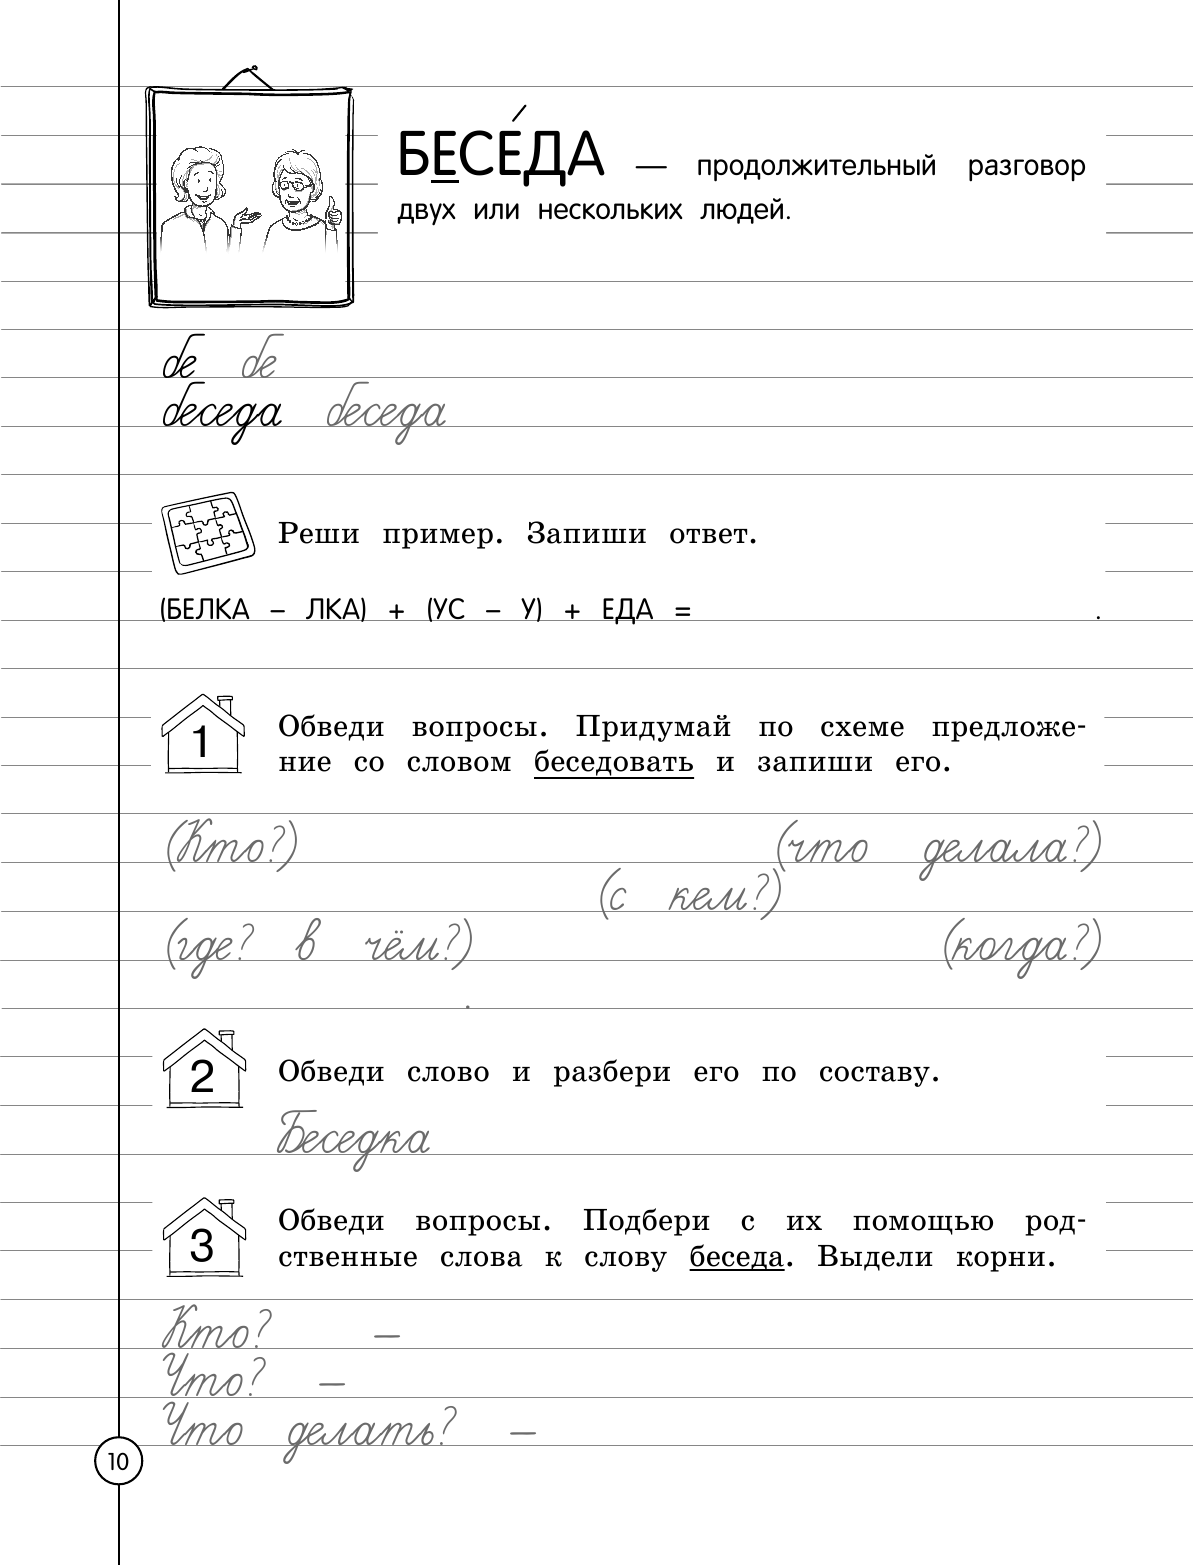 БЕСЕ́ДА — продолжительный разговор
двух или нескольких людей.
бе бе
беседа беседа
Реши пример. Запиши ответ.
(БЕЛКА – ЛКА) + (УС – У) + ЕДА = .
1
Обведи вопросы. Придумай по схеме предложе-
ние со словом беседовать и запиши его.
(Кто?) (что делала?)
(с кем?)
(где? в чём?) (когда?)
.
2
Обведи слово и разбери его по составу.
Беседка
3
Обведи вопросы. Подбери с их помощью род-
ственные слова к слову беседа. Выдели корни.
Кто? –
Что? –
Что делать? –
10